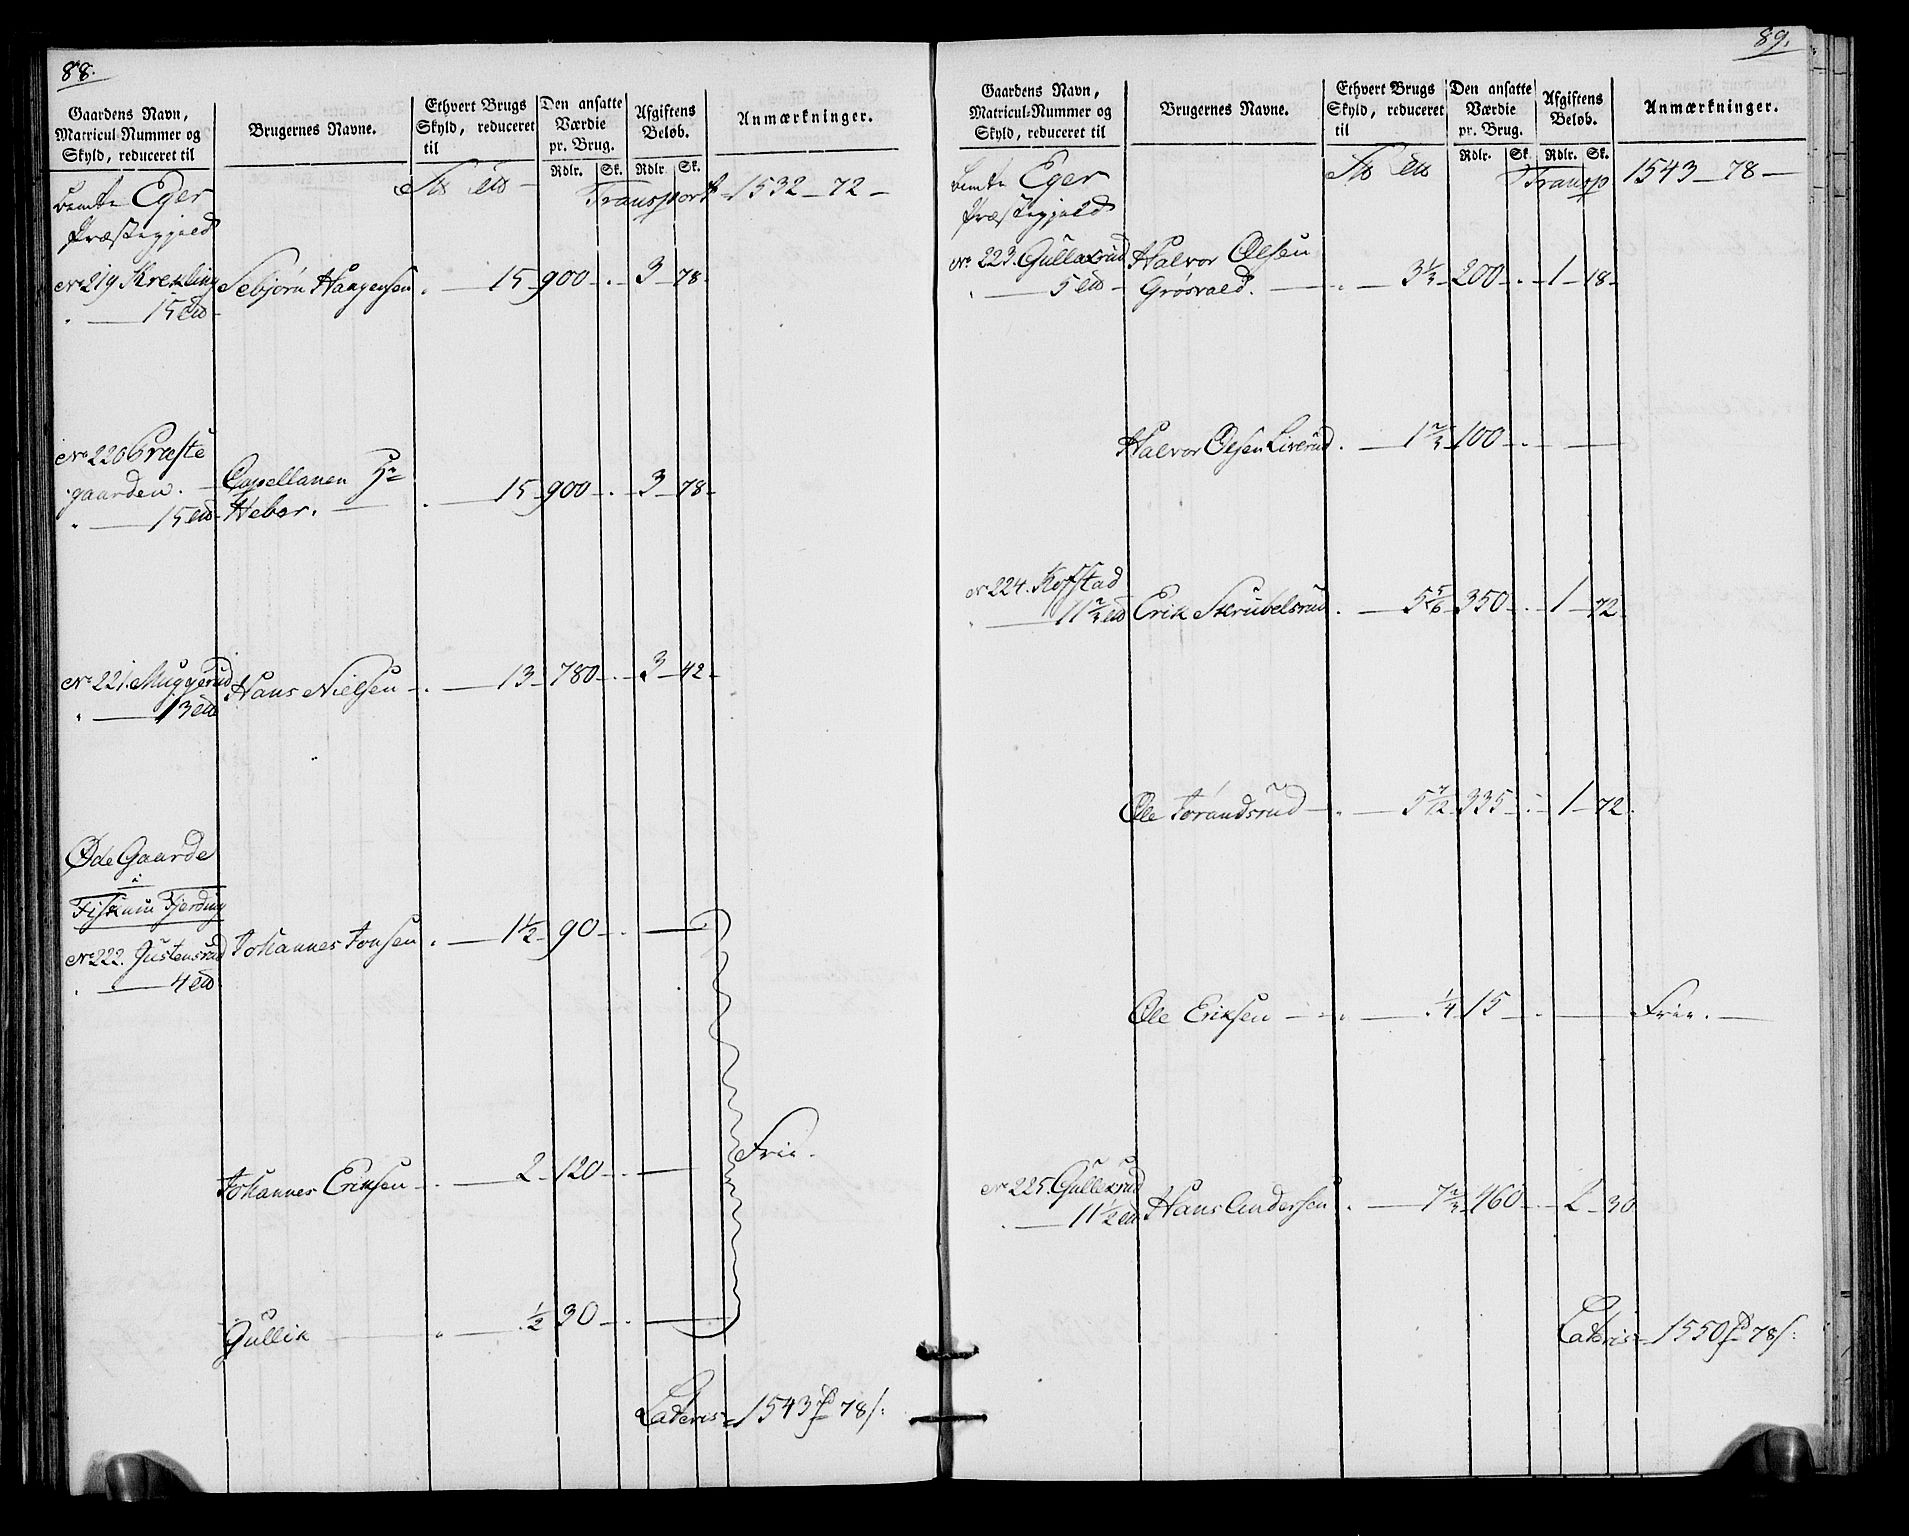 88.
Gaardens Navn,
Matricul-Nummer og
Skyld, reduceret til
Brugernes Navne.
Ethvert Brugs
Skyld, reduceret
til
Den ansatte
Værdie
pr. Brug.
Rdlr. Sk.
Afgiftens
Beløb.
Rdlr Sk.
Anmærkninger.
Eger
Præstegjeld
Transport 1532 - 72 -
No 219 Krekling Sebjørn Haagensen . 15 - 900 - . - 3 - 78 -
15
No 220 Præste
gaarden. Capellanen Hr . 15 - 900 - . - 3 - 78 -
15 Heber.
No 221. Muggerud Hans Nielsen - . 13 - 780 - . - 3 - 42 -
13
Øde Gaarde
i
Fiskum Fjerding
No 222. Justensrud Johannes Jonsen . 1½ - 90 - . -
4
Johannes Eriksen - . 2 - 120 - . - Frie.
Gullik . ½ 30 - . -
Lateris 1543 78
89.
Gaardens Navn,
Matricul-Nummer og
Skyld, reduceret til
Brugernes Navne.
Ethvert Brugs
Skyld, reduceret
til
Den ansatte
Værdie
pr. Brug.
Rdlr. Sk.
Afgiftens
Beløb.
Rdlr. Sk.
Anmærkninger.
Eger
Præstegjeld
Transp 1543 - 78 -
No 223. Gullaksrud Halvor Olsen
5 Grøsvald. 3⅓ - 200 - . - 1 - 18 -
Halvor Olsen Liverud . 1⅔ 100 - . -
No 224. Kofstad
11⅔ Erik Skrubelsrud . 5⅚ 350 - . - 1 - 72
Ole Torandsrud 5 7/12 335 - . - 1 - 72.
Ole Eriksen . ¼ 15 - . - Frie.
No 225. Gulleksrud
11½ Hans Andersen . 7⅔ 460 - . - 2 - 30
Lateris 1550 78